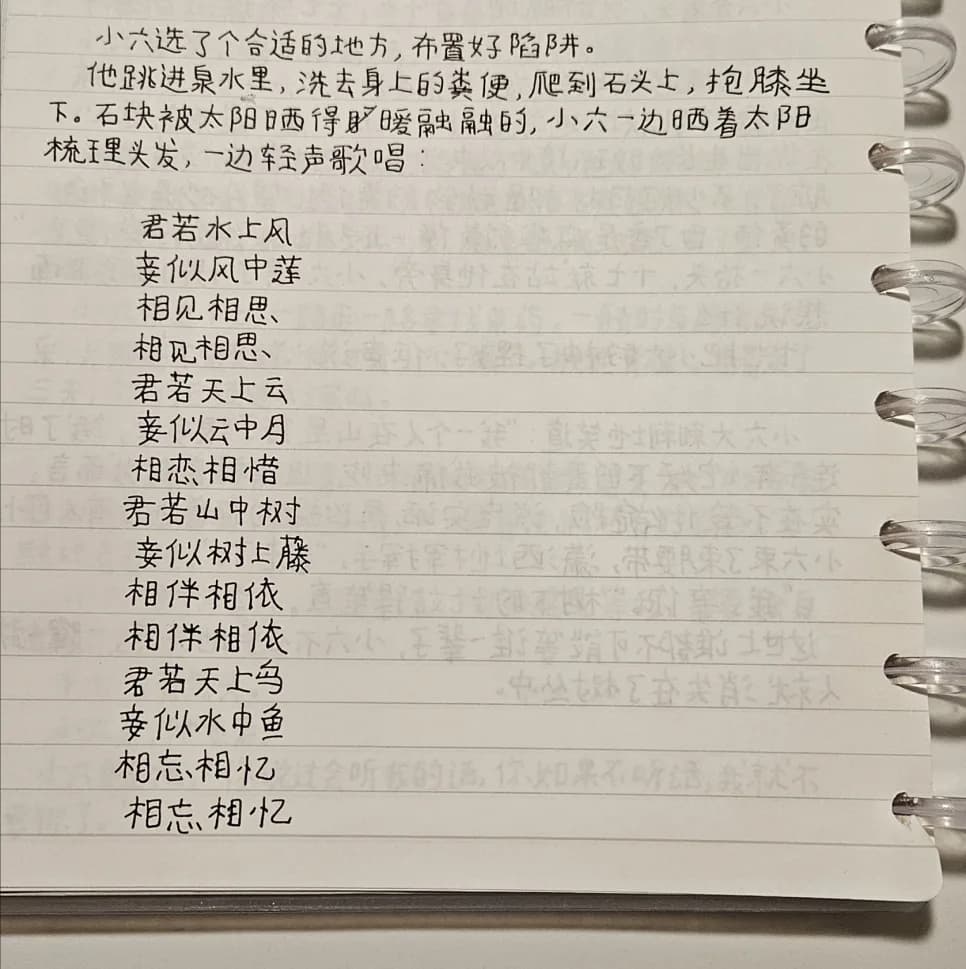 小六选了个合适的地方,布置好陷阱。
他跳进泉水里,洗去身上的粪便,爬到石头上,抱膝坐
下。石块被太阳晒得暖融融的,小六一边晒着太阳
梳理头发,一边轻声歌唱:
君若水上风
妾似风中莲
相见相思、
相见相思、
君若天上云
妾似云中月
相恋相惜
君若山中树
妾似树上藤
相伴相依
相伴相依
君若天上鸟
妾似水中鱼
相忘相忆
相忘相忆